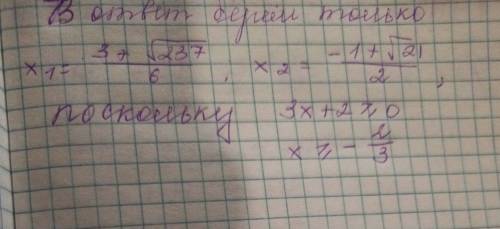 В ответ берём только
x₁ = (3 + √237)/6, x₂ = (-1 + √21)/2,
поскольку 3x + 2 ⩾ 0
x ⩾ -2/3